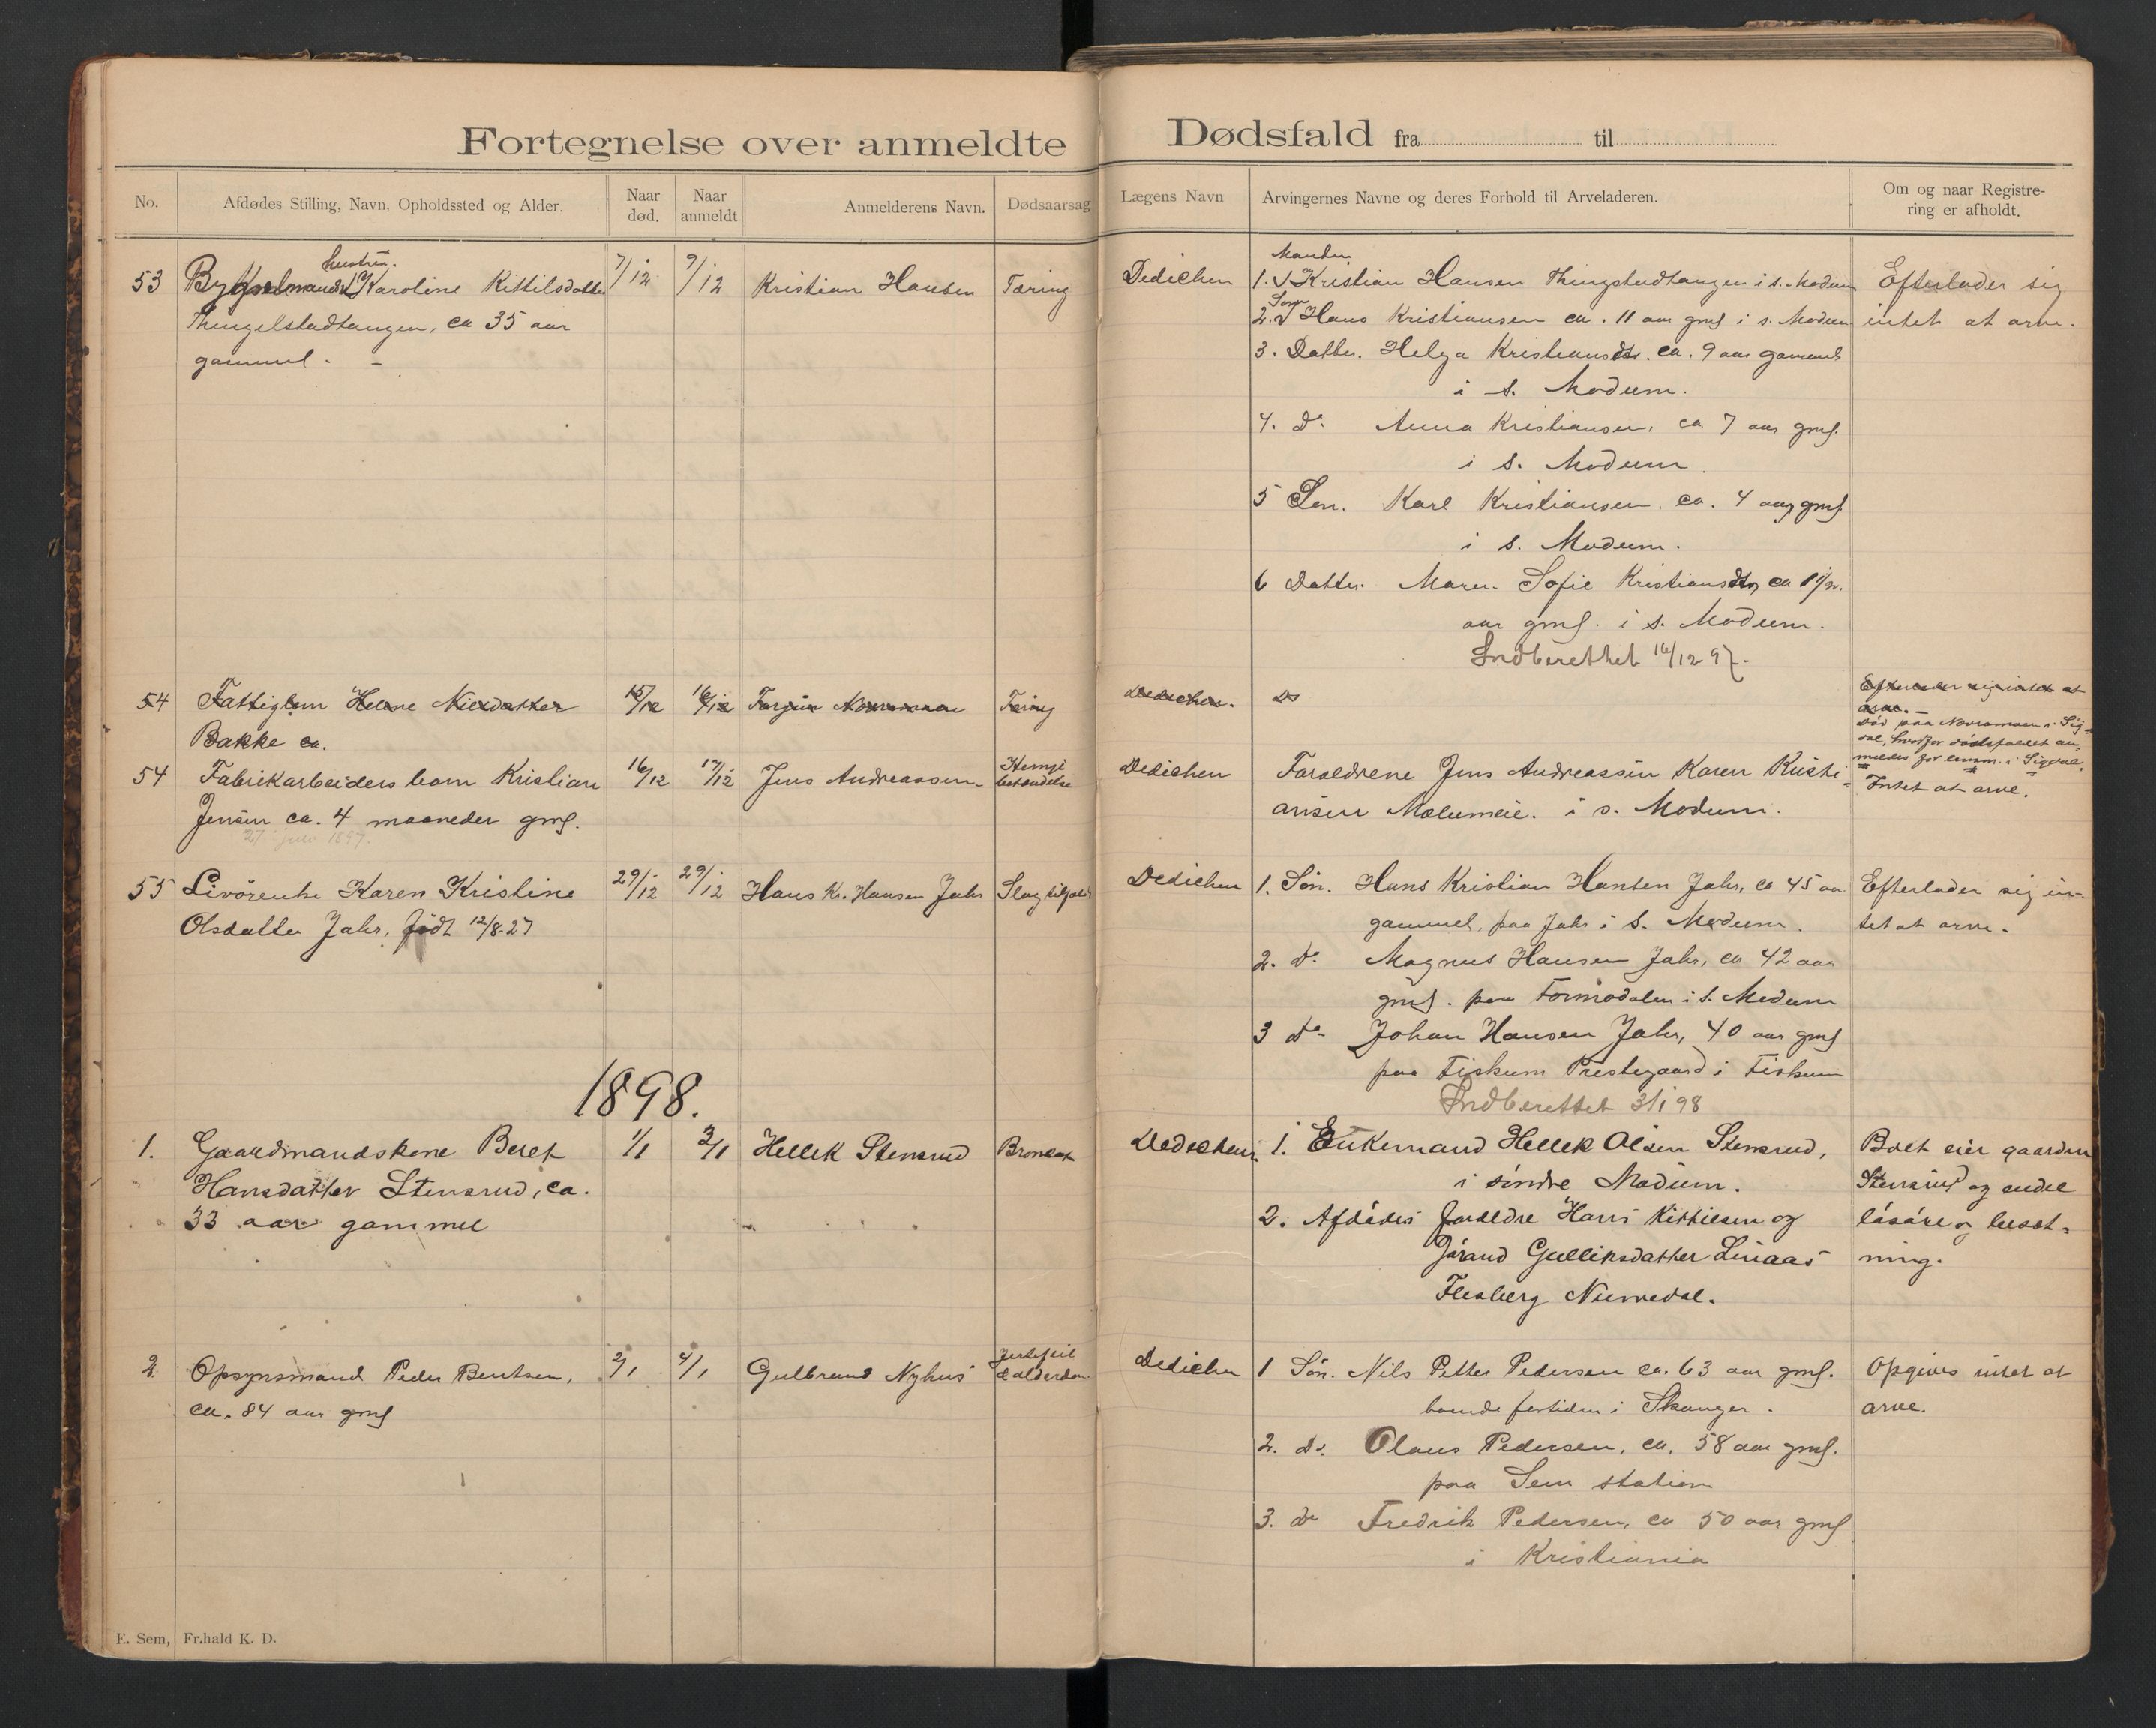 Fortegnelse over anmeldte
No.
Afdødes Stilling, Navn, Opholdssted og Alder.
Naar død.
Naar anmeldt
Anmelderens Navn.
Dødsaarsag
53 hustru. 7/12 9/12 Kristian Hansen Tæring
Bygselmands Karoline Kittilsdatter
Thingelstadtangen, ca 35 aar
gammel. -
54 Fattiglem Helene Nilsdatter 15/12 16/12 Torjus Tæring
Bakke ca.
54 Fabrikarbeiders barn Kristian 16/12 17/12 Jens Andreassen
Jensen ca. 4 maaneder gml.
27 juli 1897.
55 Livørenke Karen Kristine 29/12 29/12 Hans Kr. Hansen Jahr Slagtilfælde
Olsdatter Jahr, født 12/8-27
1898.
1. Gaardmandskone Beret 1/1 3/1 Hellek Stensrud
Hansdatter Stensrud, ca.
33 aar gammel
2 Opsynsmand Peder Bentsen, 2/1 4/1 Gulbrand Nyhus Hjertefeil
& alderdom
ca. 84 aar gml
E. Sem, Fr.hald K. D.
Dødsfald fra til
Lægens Navn
Arvingernes Navne og deres Forhold til Arveladeren.
Om og naar Registre-
ring er afholdt.
Manden
Dedichen 1. Kristian Hansen Thingstadtangen i s. Modum Efterlader sig
Søn
2. Hans Kristiansen ca. 11 aar gml i s. Modum intet at arve.
3. Datter. Helga Kristiansdtr. ca. 9 aar gammel
i s. Modum.
4. Do Anna Kristiansen, ca 7 aar gml.
i s. Modum.
5 Søn. Karl Kristiansen. ca. 4 aar gml
i s. Modum.
6 Datter. Maren Sofie Kristiansdtr, ca 1 1/2
aar gml. i s. Modum.
Indberettet 16/12 97.
Dedichen. Do Efterlader sig intet at
arve. -
Død paa Noramoen i Sig-
dal, hvorfor dødsfaldet an-
meldes for lensm. i Sigdal.
Dedichen Forældrene Jens Andreassen Karen Kristi- Intet at arve.
ansen Mælumeie. i s. Modum.
Dedichen 1. Søn. Hans Kristian Hansen Jahr, ca 45 aar Efterlader sig in-
gammel, paa Jahr i S. Modum. tet at arve.
2. Do Magnus Hansen Jahr, ca 42 aar
gml. paa Tormodalen i S. Modum
3 Do Johan Hansen Jahr, 40 aar gml
paa Fiskum Prestegaard i Fiskum
Indberettet 31/1 98
Dedichen 1. Enkemand Hellek Olsen Stensrud, Boet eier gaarden
i søndre Modum. Stensrud og endel
2. Afdødes forældre Hans Kittilsen og løsøre og besæt-
Jørand Gulliksdatter Linaas ning.
Flesberg Numedal.
Dedichen 1 Søn. Nils Petter Pedersen ca. 63 aar gml. Opgives intet at
boende fortiden i Skauger. arve.
2. Do. Olaus Pedersen, ca. 58 aar gml.
paa Sem station
3. Do Fredrik Pedersen, ca 50 aar gml
i Kristiania